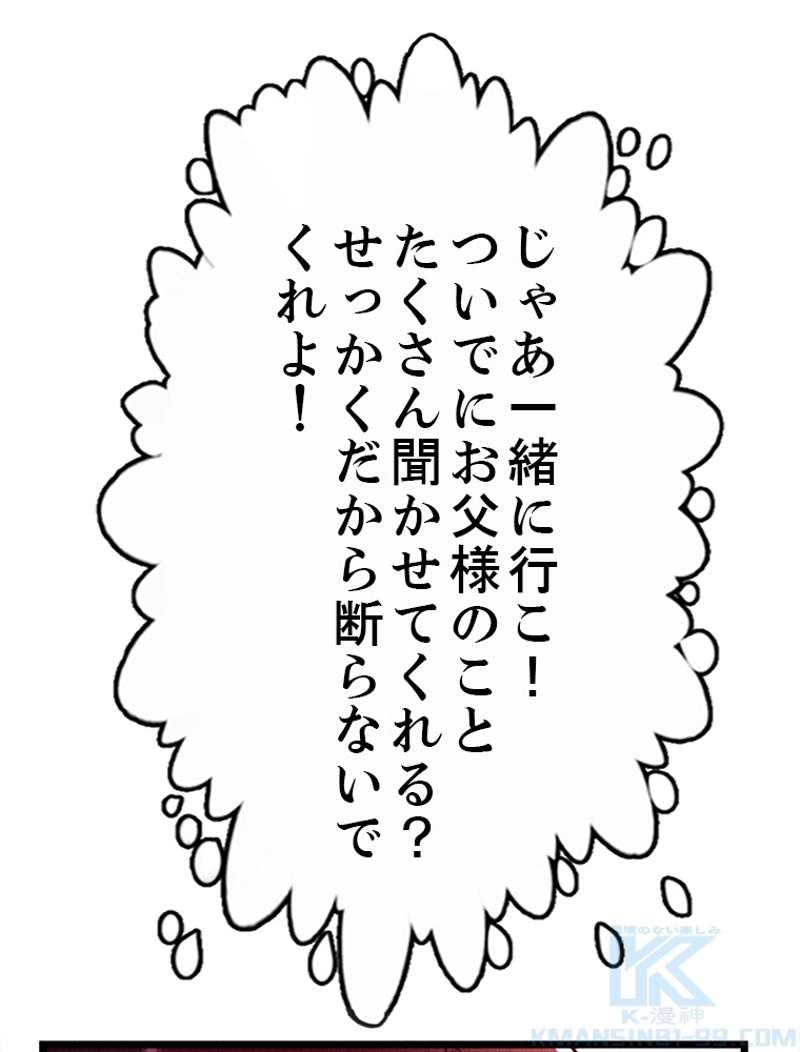 じゃあ一緒に行こ！
ついでにお父様のこと
たくさん聞かせてくれる？
せっかくだから断らないで
くれよ！
K-漫神
KMANSIN01-99.COM